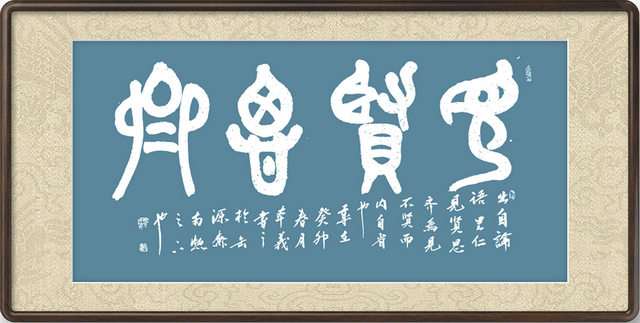 見賢思齊
出自論
語里仁
見賢思
齐焉見
不賢而
内自省
也
歲在
癸卯
春月
書之
於
源
南
之下
也